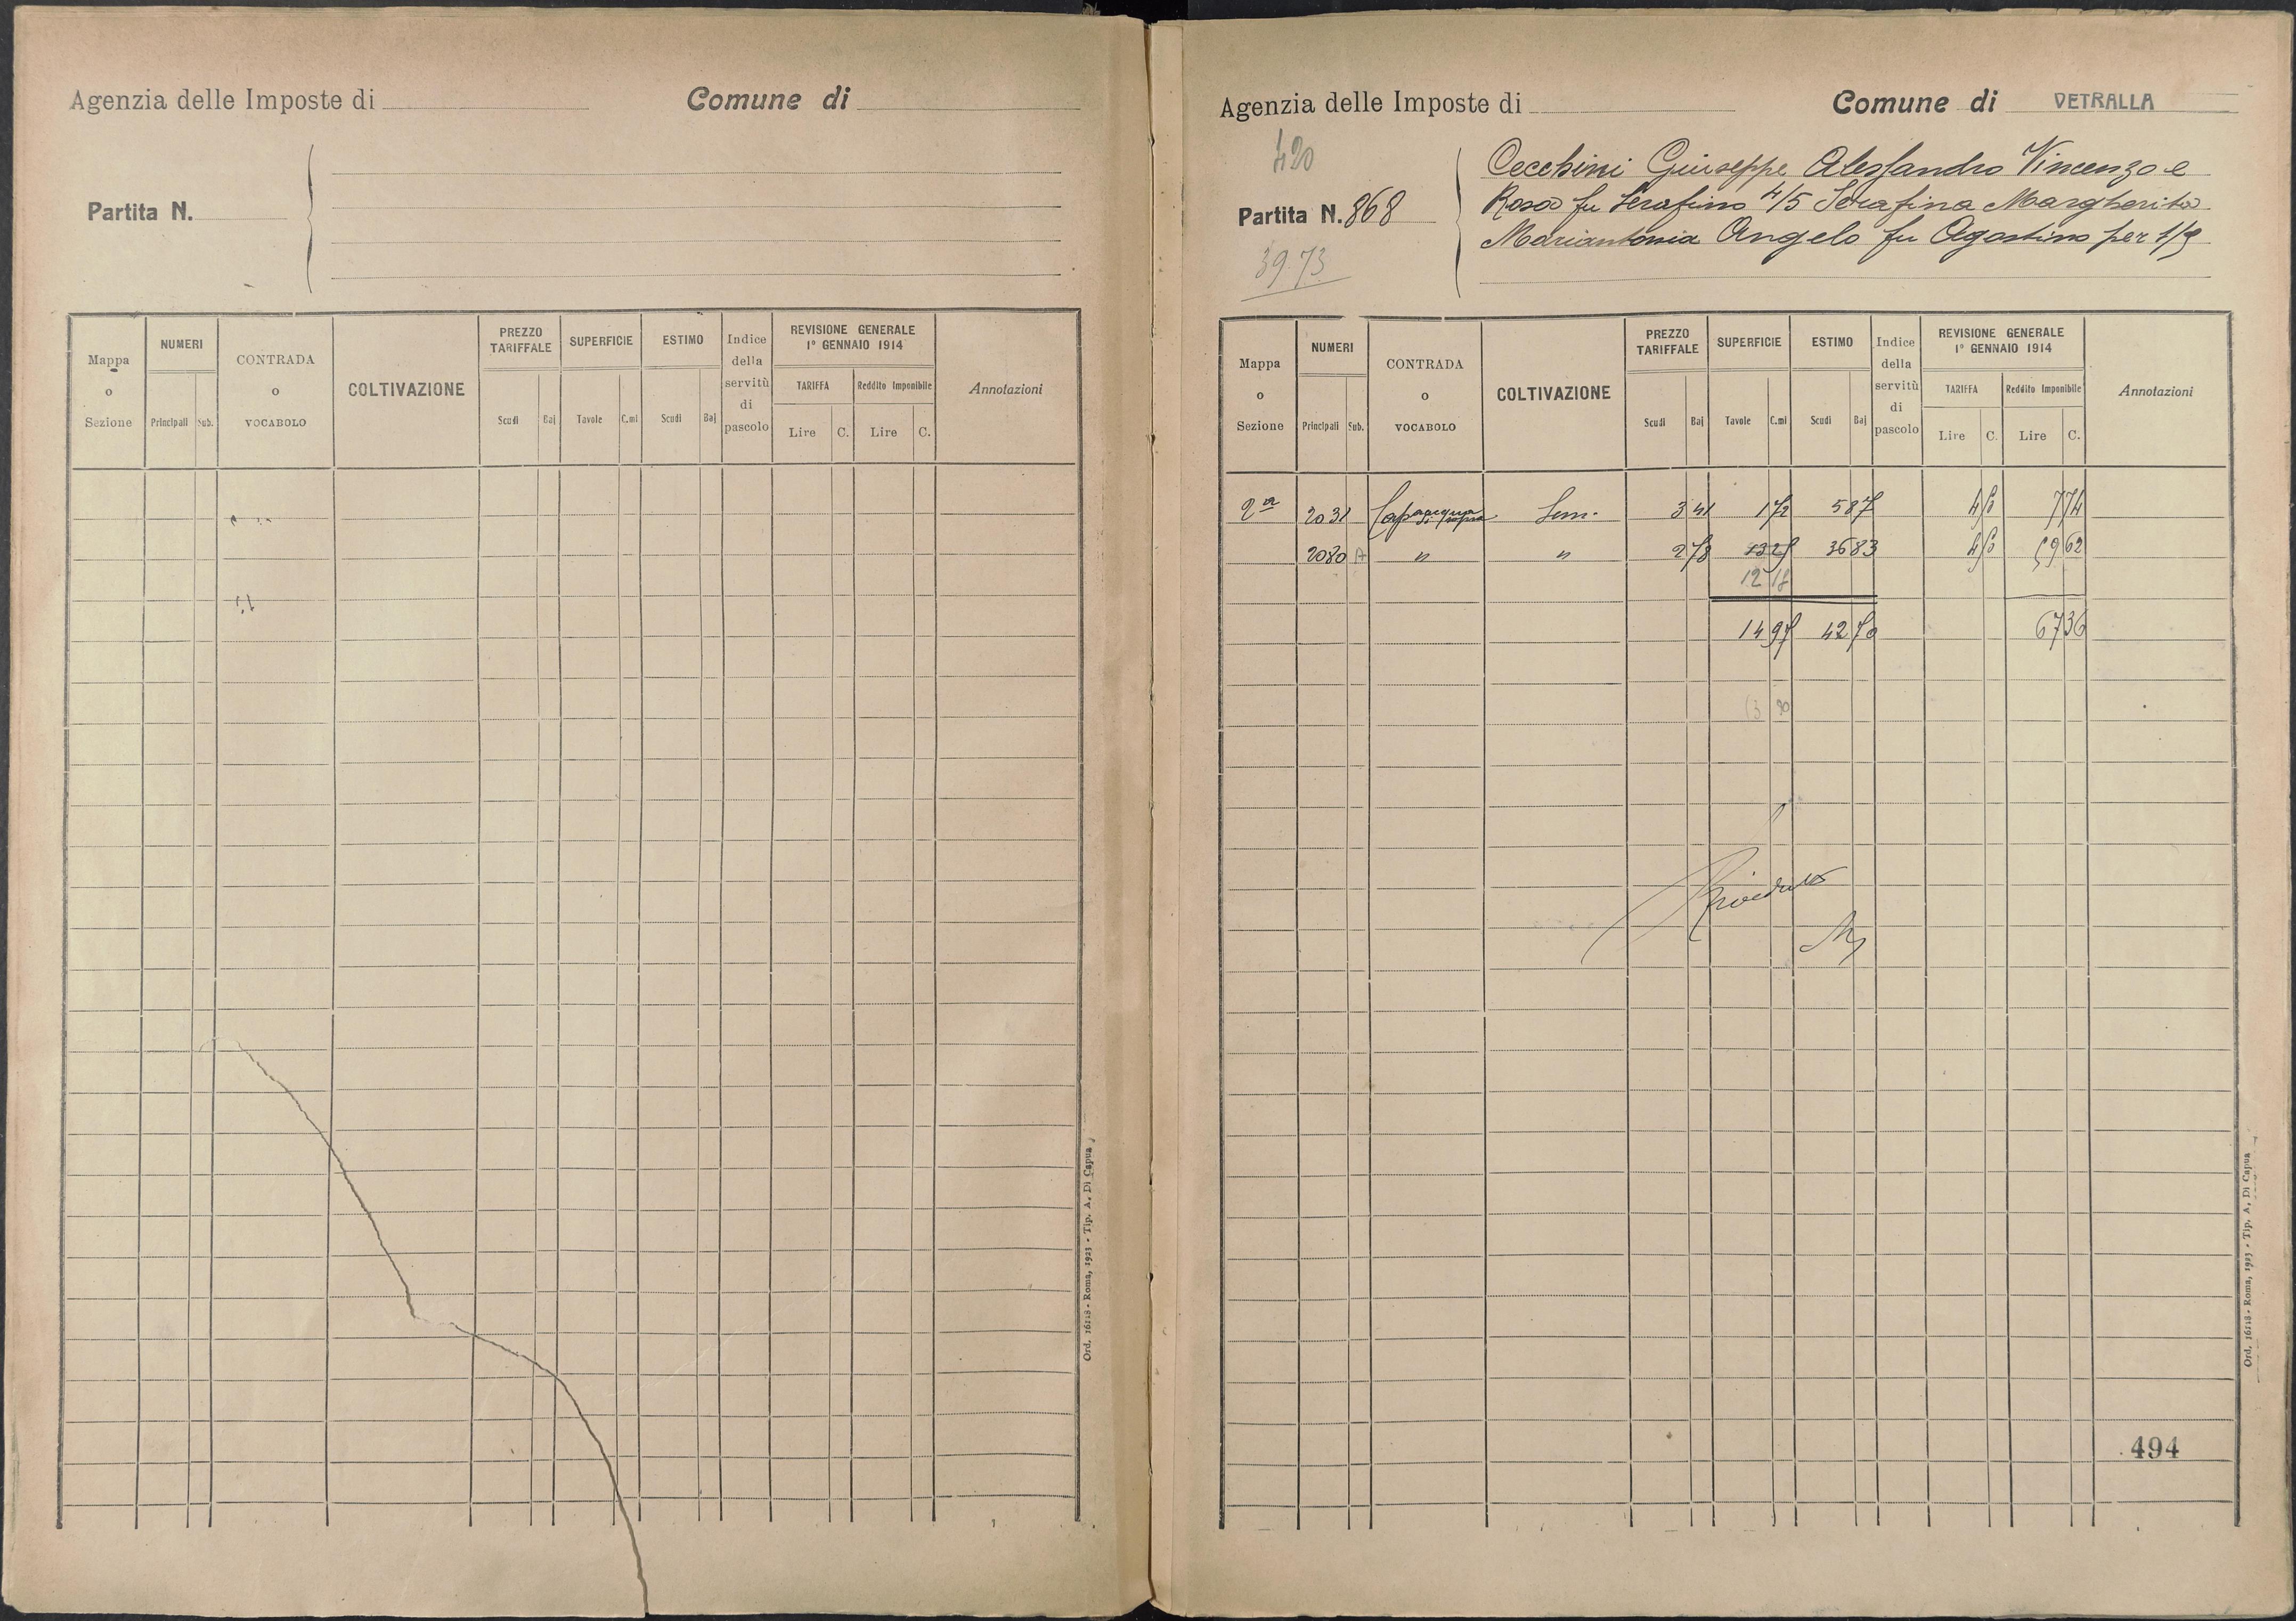 Agenzia delle Imposte di
Comune di
Partita N.
Mappa o Sezione
NUMERI
Principali
Sub.
CONTRADA o VOCABOLO
COLTIVAZIONE
PREZZO TARIFFALE
Scudi
Baj
SUPERFICIE
Tavole
C.mi
ESTIMO
Scudi
Baj
Indice della servitù di pascolo
REVISIONE GENERALE 1° GENNAIO 1914
TARIFFA
Lire
C.
Reddito Imponibile
Lire
C.
Annotazioni
Ord. 16118 - Roma, 1923 - Tip. A. Di Capua
Agenzia delle Imposte di
Comune di VETRALLA
420
Partita N. 868
39.73
Cecchini Giuseppe Alessandro Vincenzo e
Rosa fu Serafino 4/5 Serafina Margherita
Mariantonia Angelo fu Agostino per 1/5
Mappa o Sezione
NUMERI
Principali
Sub.
CONTRADA o VOCABOLO
COLTIVAZIONE
PREZZO TARIFFALE
Scudi
Baj
SUPERFICIE
Tavole
C.mi
ESTIMO
Scudi
Baj
Indice della servitù di pascolo
REVISIONE GENERALE 1° GENNAIO 1914
TARIFFA
Lire
C.
Reddito Imponibile
Lire
C.
Annotazioni
2a 2031 Capacqua di sopra Sem. 3 41 1 72 5 87 4 50 7 74
2080 A " " 2 78 13 25 36 83 4 50 59 62
12 18
14 97 42 70 67 36
(3 90
Riveduto
494
Ord. 16118 - Roma, 1923 - Tip. A. Di Capua